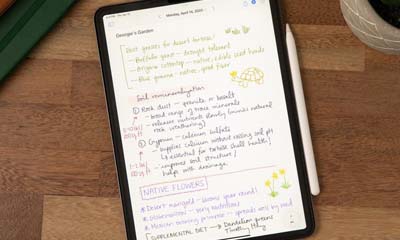 Monday, April 14, 2025
Georgie's Garden
Best grasses for desert tortoise!
– Buffalo grass – drought tolerant
– Arizona cottontop – native, edible seed heads
– Blue gramma – native, good fiber
Soil remineralization
① Rock dust – granite or basalt
– broad range of trace minerals
– releases nutrients slowly (mimics natural
rock weathering)
② Gypsum – calcium sulfate
– supplies calcium without raising soil pH
↳ essential for tortoise shell health!
– improves soil structure /
helps with drainage
NATIVE FLOWERS
* Desert marigold – blooms year round!
* Globemallow – very nutritious
* Mexican evening primrose – spreads well by seed
SUPPLEMENTAL DIET → Dandelion greens
Timothy Hay